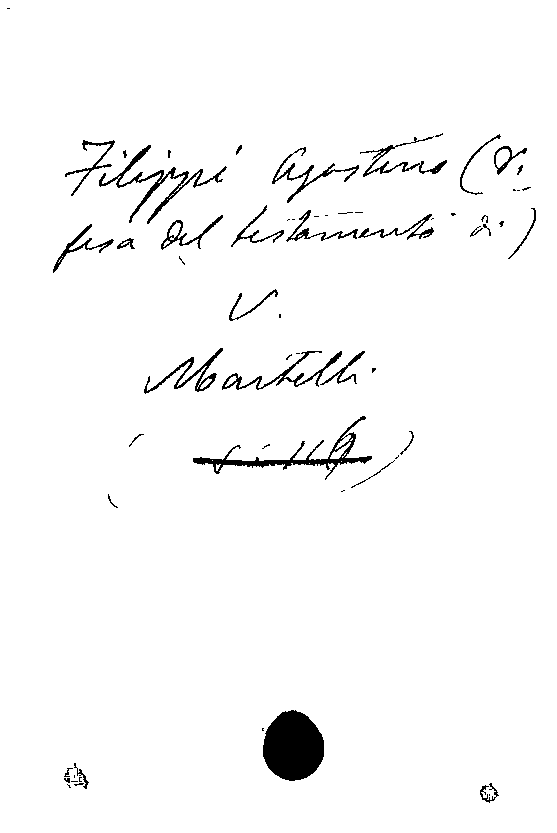 Filippi Agostino (Di-
fesa del testamento di)
V.
Martelli